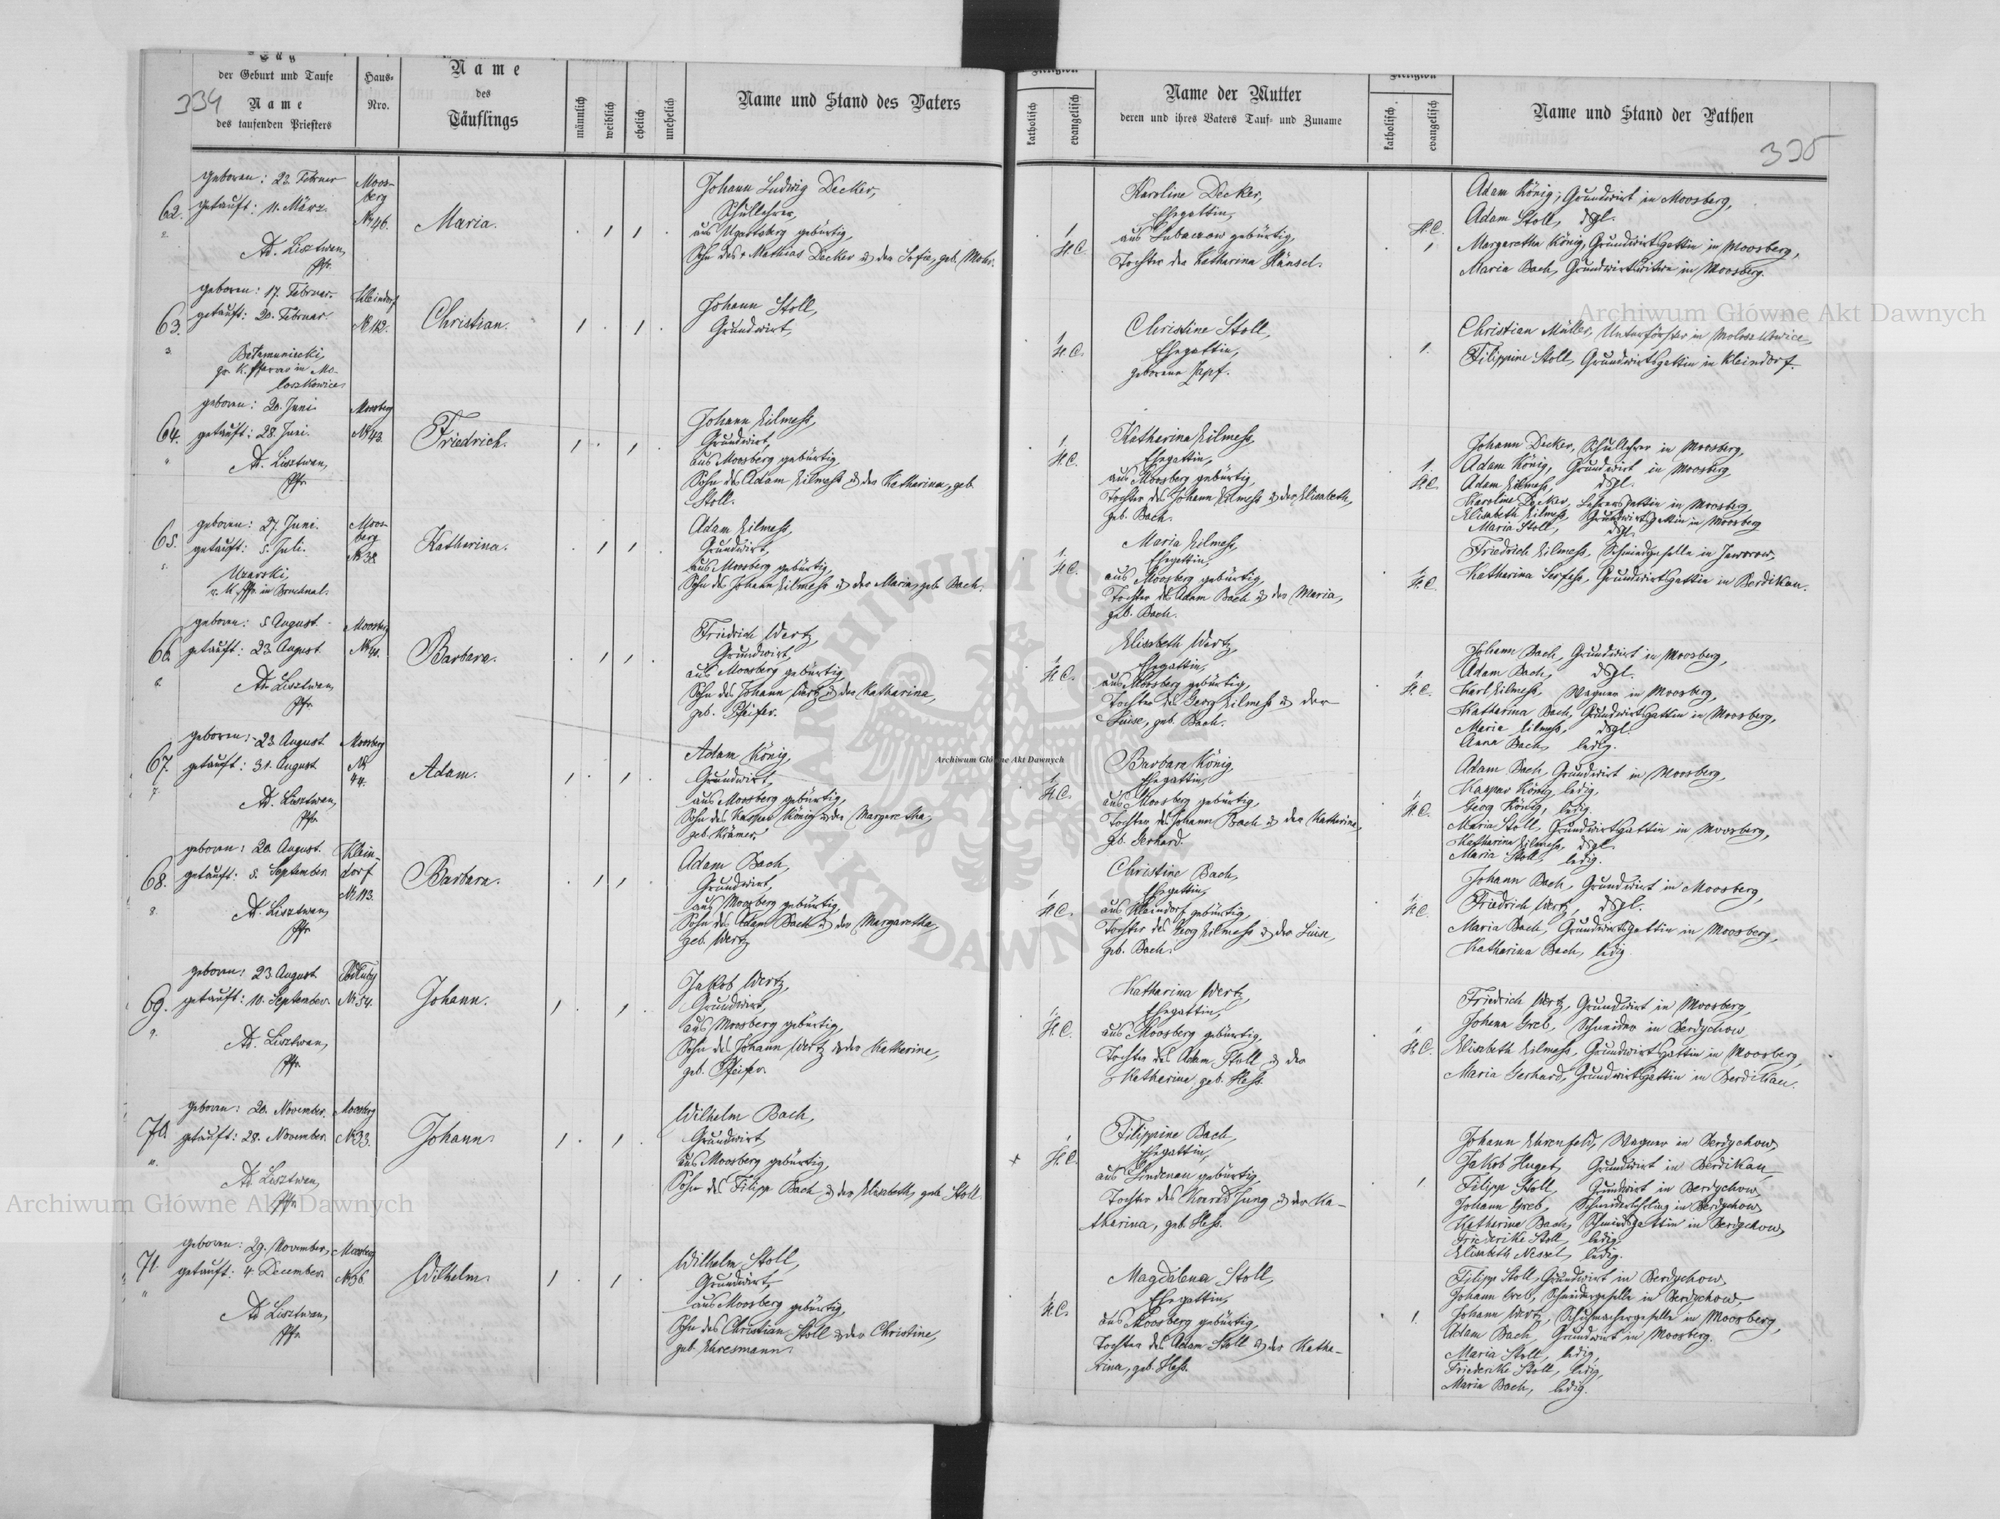 334
Tag
der Geburt und Taufe
Name
des taufenden Priesters
Haus-
Nro.
Name
des
Täuflings
männlich
weiblich
ehelich
unehelich
Name und Stand des Vaters
Religion
katholisch
evangelisch
Name der Mutter
deren und ihres Vaters Tauf- und Zuname
Religion
katholisch
evangelisch
Name und Stand der Pathen
335
62.
geboren: 22. Februar
getauft: 11. März
Ad. Lisztwan,
Pfr.
Moos-
berg
No 46.
Maria.
Johann Ludwig Decker,
Schullehrer,
aus Ugartsberg gebürtig,
Sohn des Mathias Decker u. der Sofie, geb. Mohr.
H.C.
Karoline Decker,
Ehegattin,
aus gebürtig,
Tochter der Katharina Hänsel.
H.C.
Adam König, Grundwirt in Moosberg,
Adam Stoll, dsgl.
Margaretha König, Grundwirtsgattin in Moosberg,
Maria Bach, Grundwirtswitwe in Moosberg.
63.
geboren: 17. Februar
getauft: 20. Februar
gr. k. Pfarrer in Mo-
loszkowice
Kleindorf
No 112.
Christian.
Johann Stoll,
Grundwirt,
H.C.
Christine Stoll,
Ehegattin,
geborene Zapf.
Christian Müller, Unterförster in Moloszkowice,
Filippine Stoll, Grundwirtsgattin in Kleindorf.
64.
geboren: 20. Juni
getauft: 28. Juni.
Ad. Lisztwan,
Pfr.
Moosberg
No 43.
Friedrich.
Johann Eilmess,
Grundwirt,
aus Moosberg gebürtig,
Sohn des Adam Eilmess u. der Katharina, geb.
Stoll.
H.C.
Katharina Eilmess,
Ehegattin,
aus Moosberg gebürtig,
Tochter des Johann Eilmess u. der Elisabeth,
geb. Bach.
H.C.
Johann Decker, Schullehrer in Moosberg,
Adam König, Grundwirt in Moosberg,
Adam Eilmess, dsgl.
Karoline Decker, Lehrersgattin in Moosberg,
Elisabeth Eilmess, Grundwirtsgattin in Moosberg
Maria Stoll, dsgl.
65.
geboren: 27. Juni.
getauft: 5. Juli.
r. k. Pfr. in Bruchnal.
Moos-
berg
No 38.
Katharina.
Adam Eilmess,
Grundwirt,
aus Moosberg gebürtig,
Sohn des Johann Eilmess u. der Maria, geb. Bach.
H.C.
Maria Eilmess,
Ehegattin,
aus Moosberg gebürtig,
Tochter des Adam Bach u. der Maria,
geb. Bach.
H.C.
Friedrich Eilmess, Schmiedgeselle in Jaworow,
Katharina Serfess, Grundwirtsgattin in Berdikau.
66.
geboren: 5. August
getauft: 23. August
Ad. Lisztwan,
Pfr.
Moosberg
Barbara.
Friedrich Wertz,
Grundwirt,
aus Moosberg gebürtig,
Sohn des Johann Wertz u. der Katharina,
geb. Pfeifer.
H.C.
Elisabeth Wertz,
Ehegattin,
aus Moosberg gebürtig,
Tochter des Georg Eilmess u. der
Luise, geb. Bach.
H.C.
Johann Bach, Grundwirt in Moosberg,
Adam Bach, dsgl.
Karl Eilmess, Wagner in Moosberg,
Katharina Bach, Grundwirtsgattin in Moosberg,
Maria Eilmess, dsgl.
Anna Bach, ledig.
67.
geboren: 23. August
getauft: 31. August
Ad. Lisztwan,
Pfr.
Moosberg
No
44.
Adam.
Adam König,
Grundwirt,
aus Moosberg gebürtig,
Sohn des Kaspar König u. der Margaretha,
geb. Krämer.
H.C.
Barbara König,
Ehegattin,
aus Moosberg gebürtig,
Tochter des Johann Bach u. der Katharina,
geb. Gerhard.
H.C.
Adam Bach, Grundwirt in Moosberg,
Kaspar König, ledig,
Georg König, ledig,
Maria Stoll, Grundwirtsgattin in Moosberg,
Katharina Eilmess, dsgl.
Maria Stoll, ledig.
68.
geboren: 20. August.
getauft: 5. September.
Ad. Lisztwan,
Pfr.
Klein-
dorf
No 113.
Barbara.
Adam Bach,
Grundwirt,
aus Moosberg gebürtig,
Sohn des Adam Bach u. der Margaretha,
geb. Wertz
H.C.
Christine Bach,
Ehegattin,
aus Kleindorf gebürtig,
Tochter des Georg Eilmess u. der Luise,
geb. Bach.
H.C.
Johann Bach, Grundwirt in Moosberg,
Friedrich Wertz, dsgl.
Maria Bach, Grundwirtsgattin in Moosberg,
Katharina Bach, ledig.
69.
geboren: 23. August
getauft: 10. September.
Ad. Lisztwan,
Pfr.
No 54.
Johann.
Jakob Wertz,
Grundwirt,
aus Moosberg gebürtig,
Sohn des Johann Wertz u. der Katharina,
geb. Pfeifer
H.C.
Katharina Wertz,
Ehegattin,
aus Moosberg gebürtig,
Tochter des Adam Stoll u. der
Katharina, geb. Hess.
H.C.
Friedrich Wertz, Grundwirt in Moosberg,
Johann Greb, Schneider in Berdychow
Elisabeth Eilmess, Grundwirtsgattin in Moosberg,
Maria Gerhard, Grundwirtsgattin in Berdikau.
70.
geboren: 20. November.
getauft: 28. November.
Ad. Lisztwan,
Pfr.
Moosberg
No 33.
Johann.
Wilhelm Bach,
Grundwirt,
aus Moosberg gebürtig,
Sohn des Filipp Bach u. der Elisabeth, geb. Stoll.
H.C.
Filippine Bach,
Ehegattin,
aus Lindenau gebürtig,
Tochter des Konrad Jung u. der Ka-
tharina, geb. Hess.
Johann Ehrenfeld, Wagner in Berdychow,
Jakob Huget, Grundwirt in Berdikau
Filipp Stoll, Grundwirt in Berdychow,
Johann Greb, Schneiderlehrling in Berdychow,
Katharina Bach, Schmiedsgattin in Berdychow,
Friederike Stoll, ledig,
Elisabeth Nessel, ledig.
71.
geboren: 29. November,
getauft: 4. December.
Ad. Lisztwan,
Pfr.
Moosberg
No 36.
Wilhelm.
Wilhelm Stoll,
Grundwirt,
aus Moosberg gebürtig,
Sohn des Christian Stoll u. der Christine,
geb. Ehresmann.
H.C.
Magdalena Stoll,
Ehegattin,
aus Moosberg gebürtig,
Tochter des Adam Stoll u. der Katha-
rina, geb. Hess.
Filipp Stoll, Grundwirt in Berdychow,
Johann Greb, Schneidergeselle in Berdychow,
Johann Wertz, Schuhmachergeselle in Moosberg,
Adam Bach, Grundwirt in Moosberg.
Maria Stoll, ledig,
Friederike Stoll, ledig,
Maria Bach, ledig.
Archiwum Główne Akt Dawnych
Archiwum Główne Akt Dawnych
Archiwum Główne Akt Dawnych
ARCHIWUM GŁÓWNE AKT DAWNYCH